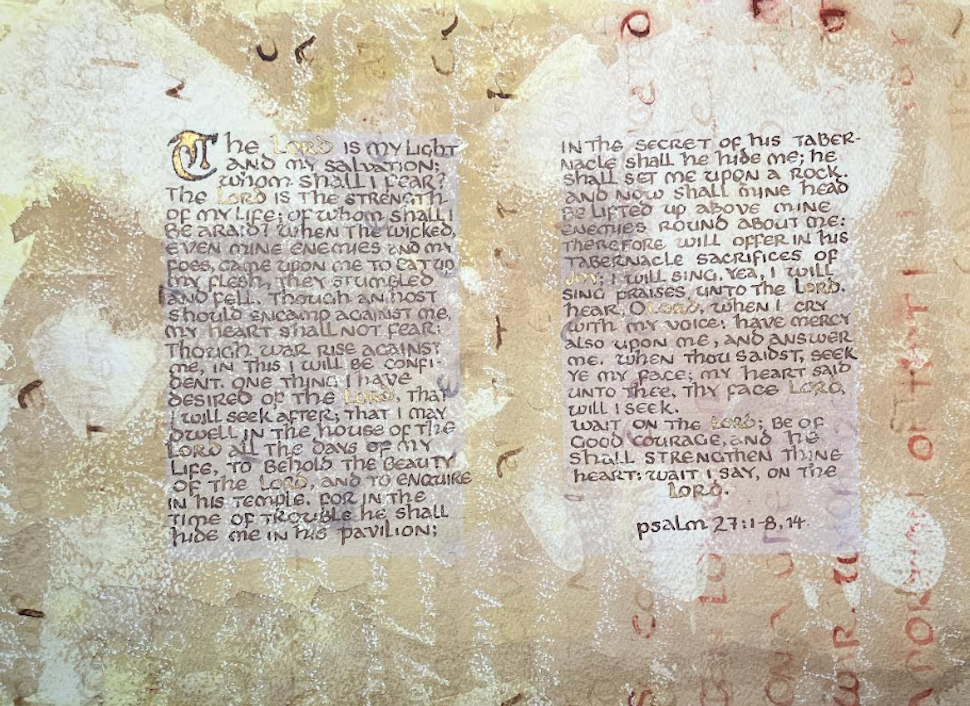 The LORD is my light
and my salvation;
whom shall I fear?
The LORD is the strength
of my life; of whom shall I
be araid? When the wicked,
even mine enemies and my
foes, came upon me to eat up
my flesh, they stumbled
and fell. Though an host
should encamp against me,
my heart shall not fear:
Though war rise against
me, in this I will be confi-
dent. One thing I have
desired of the LORD, that
I will seek after; that I may
dwell in the house of the
LORD all the days of my
life, to behold the beauty
of the LORD, and to enquire
in his temple. For in the
time of trouble he shall
hide me in his pavilion;
in the secret of his taber-
nacle shall he hide me; he
shall set me upon a rock.
And now shall mine head
be lifted up above mine
enemies round about me:
therefore will offer in his
tabernacle sacrifices of
joy; I will sing. Yea, I will
sing praises unto the LORD.
Hear, O LORD, when I cry
with my voice: have mercy
also upon me, and answer
me. When thou saidst, Seek
ye my face; my heart said
unto thee, Thy face LORD,
will I seek.
Wait on the LORD; be of
good courage, and he
shall strengthen thine
heart: wait I say, on the
LORD.
psalm 27:1-8, 14.